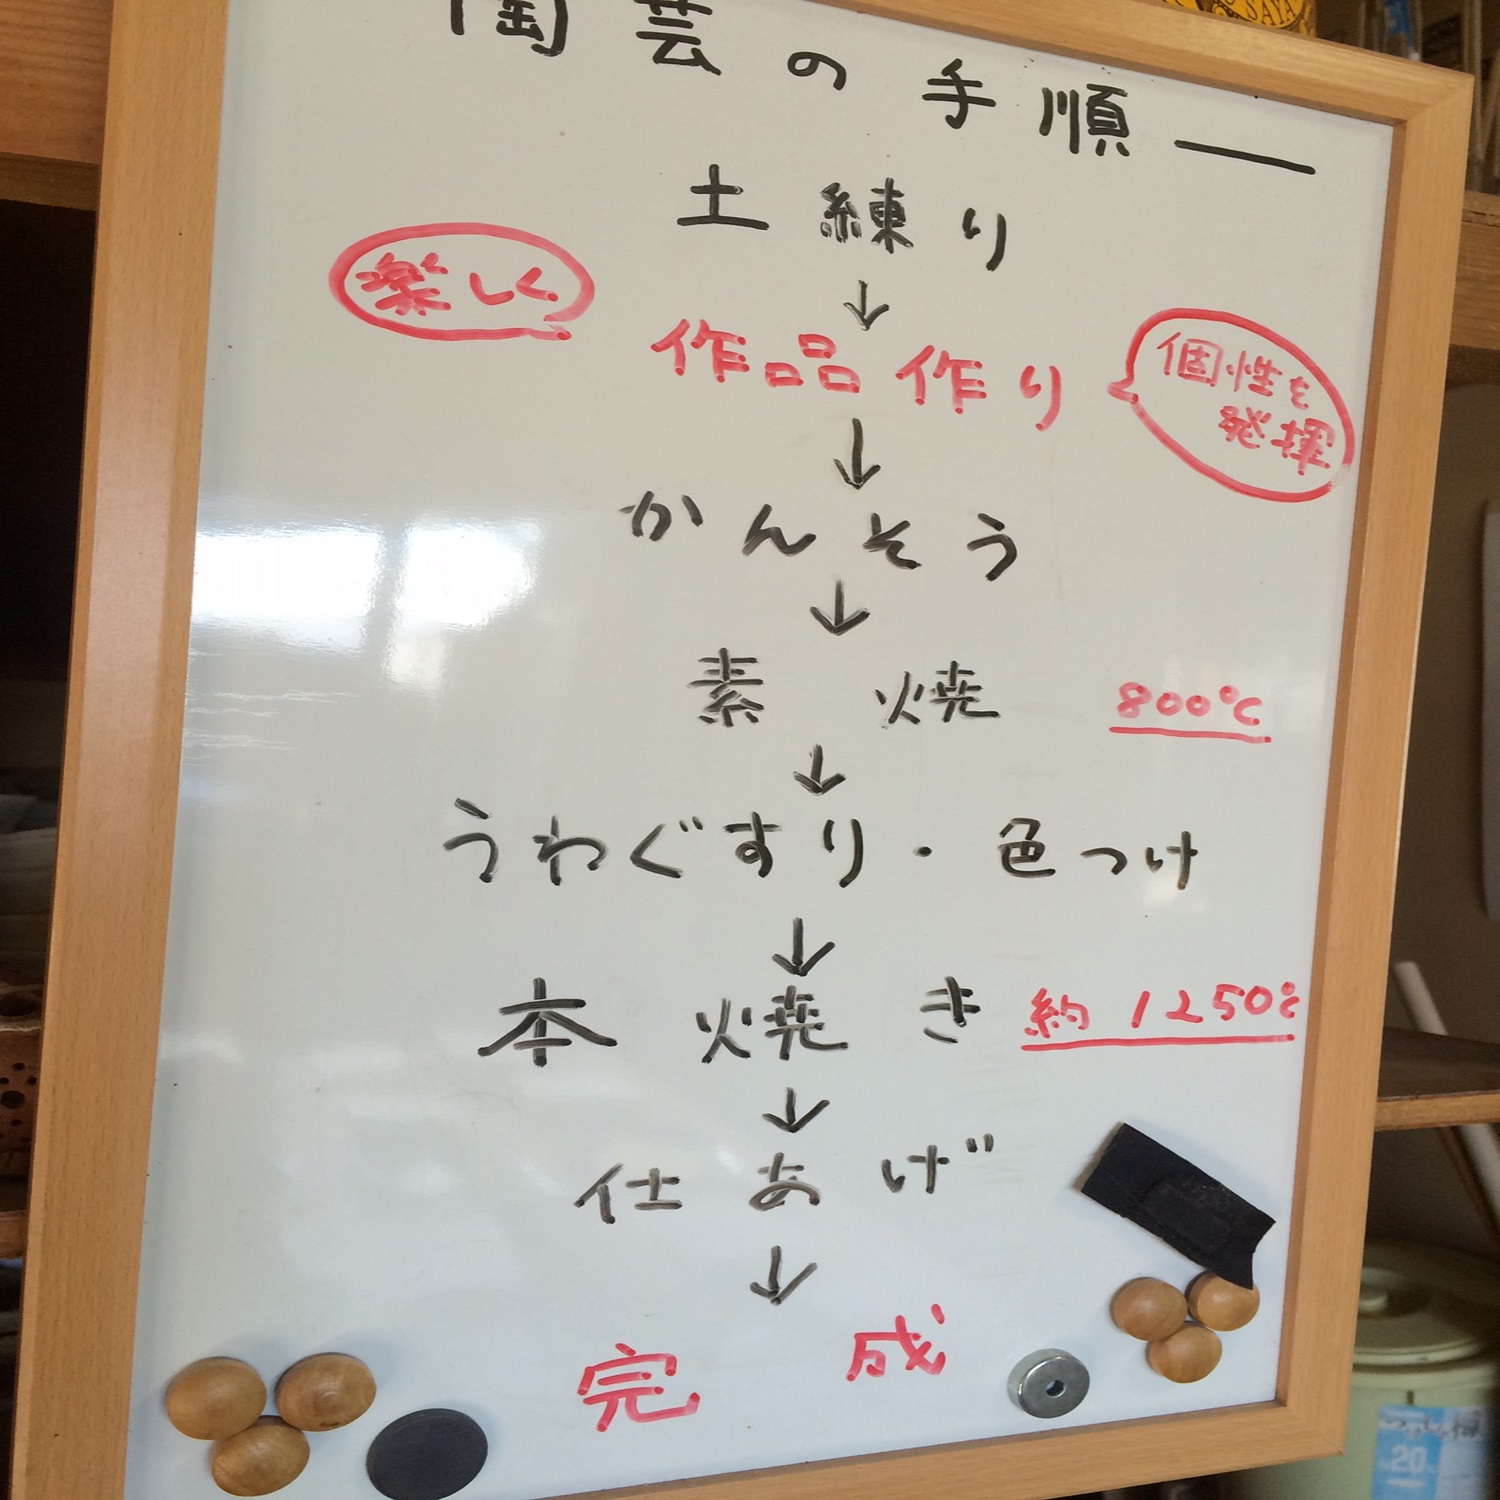 陶芸の手順
土練り
↓
楽しく
作品作り
個性を
発揮
↓
かんそう
↓
素焼 800℃
↓
うわぐすり・色つけ
↓
本焼き 約1250℃
↓
仕あげ
↓
完成
SAYA
20